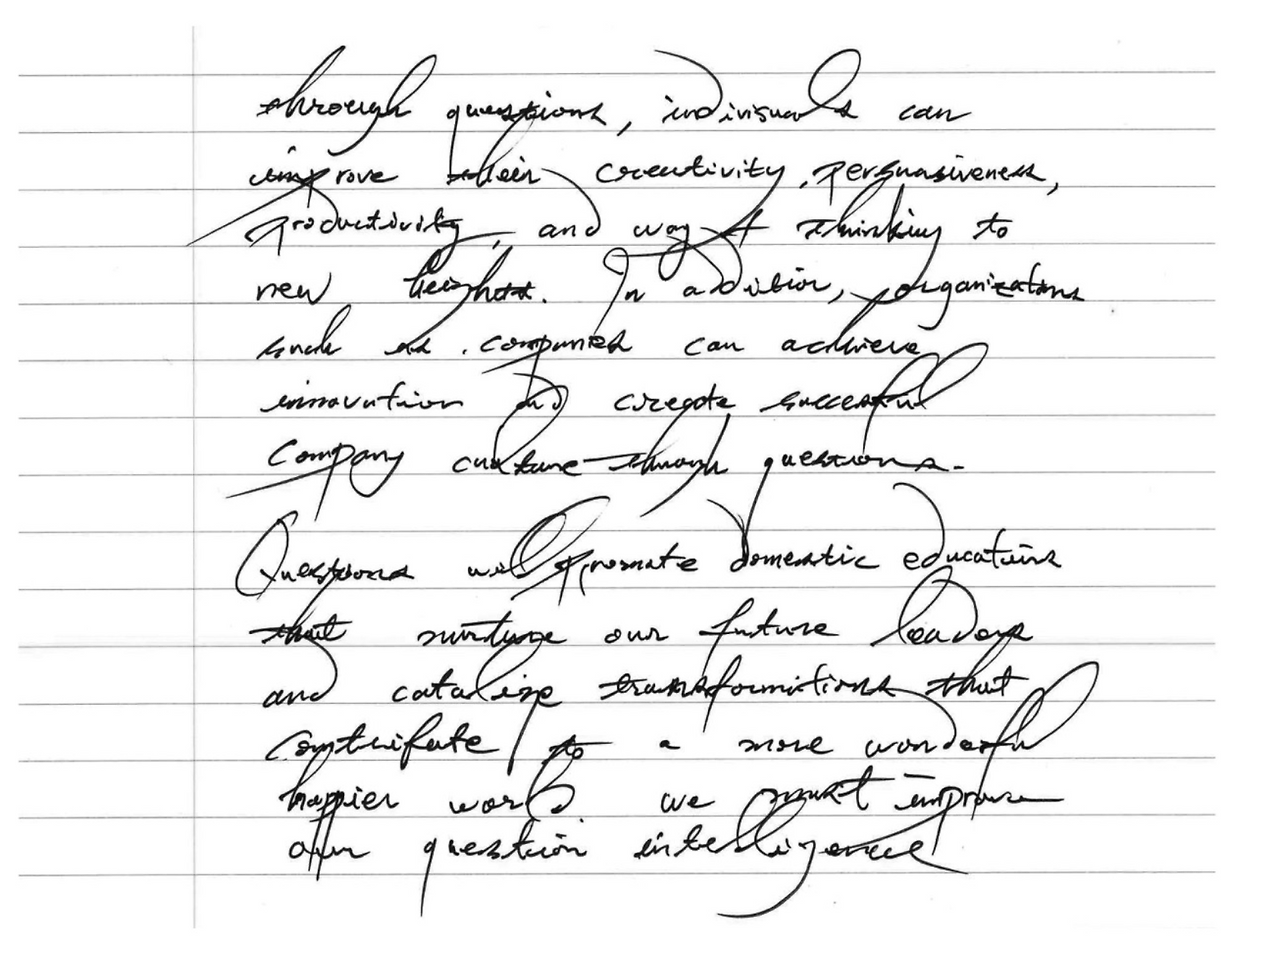 through questions, indivisuals can
improve their creativity, persuasiveness,
productivity, and way of thinking to
new heights. In addition, organizations
such as companies can achieve
innovation and create successful
company culture through questions.
Questions will promote domestic educations
that nurture our future leaders
and catalize transformations that
contribute to a more wonderful
happier world. we must improve
our question intelligence